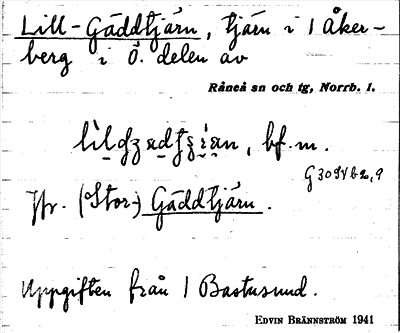 Lill-Gäddtjärn, tjärn i 1 Åker-
berg i ö. delen av
Råneå sn och tg, Norrb. l.
bf. m.
Jfr. (Stor-) Gäddtjärn.
Uppgiften från 1 Bastusund.
EDVIN BRÄNNSTRÖM 1941